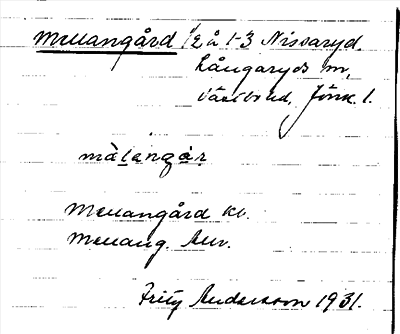 Mellangård 1/2 å 1-3 Nissaryd.
Långaryds sn,
Västbo hd, Jönk. l.
mälangår
Mellangård kb.
Mellang. Anv.
Fritz Andersson 1931.